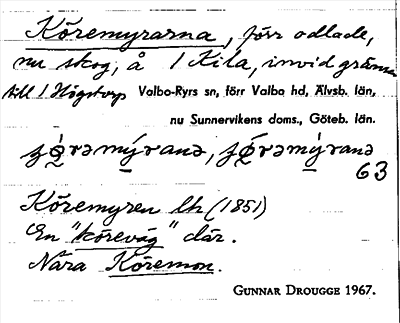 Köremyrarna, förr odlade,
nu skog, å 1 Kila, invid gränsen
till 1 Högstorp Valbo-Ryrs sn, förr Valbo hd, Älvsb. län,
nu Sunnervikens doms., Göteb. län.
63
Köremyren lk (1851)
En "köreväg" där.
Nära Köremon.
GUNNAR DROUGGE 1967.